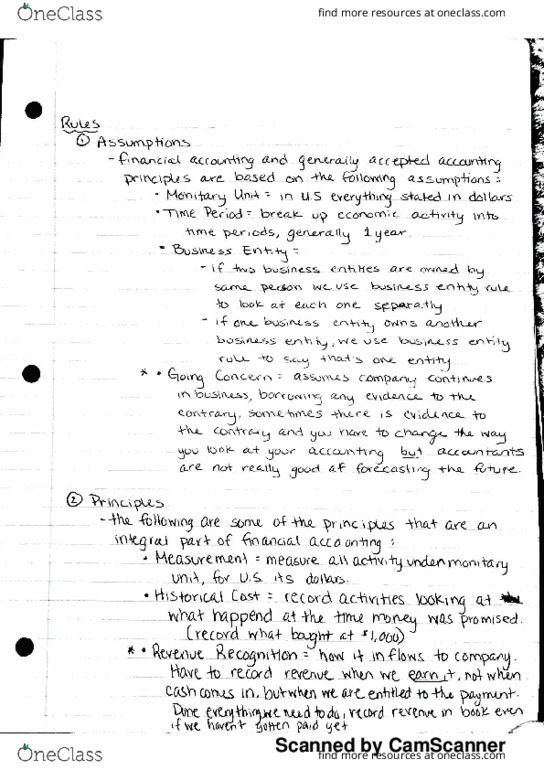 OneClass
find more resources at oneclass.com
Rules
① Assumptions
- financial accounting and generally accepted accounting
principles are based on the following assumptions:
• Monitary Unit = in U.S everything stated in dollars
• Time Period = break up economic activity into
time periods, generally 1 year
• Business Entity =
- if two business entities are owned by
same person we use business entity rule
to look at each one separatly
- if one business entity owns another
business entity, we use business entity
rule to say that's one entity
* • Going Concern = assumes company continues
in business, borrowing any evidence to the
contrary, sometimes there is evidence to
the contrary and you have to change the way
you look at your accounting but accountants
are not really good at forecasting the future.
② Principles
- the following are some of the principles that are an
integral part of financial accounting:
• Measurement = measure all activity under monitary
unit, for U.S its dollars.
• Historical Cost = record activities looking at
what happend at the time money was promised.
(record what bought at $1,000)
* • Revenue Recognition = how it inflows to company.
Have to record revenue when we earn it, not when
cash comes in, but when we are entitled to the payment.
Done everything we need to do, record revenue in book even
if we haven't gotten paid yet
Scanned by CamScanner
OneClass
find more resources at oneclass.com